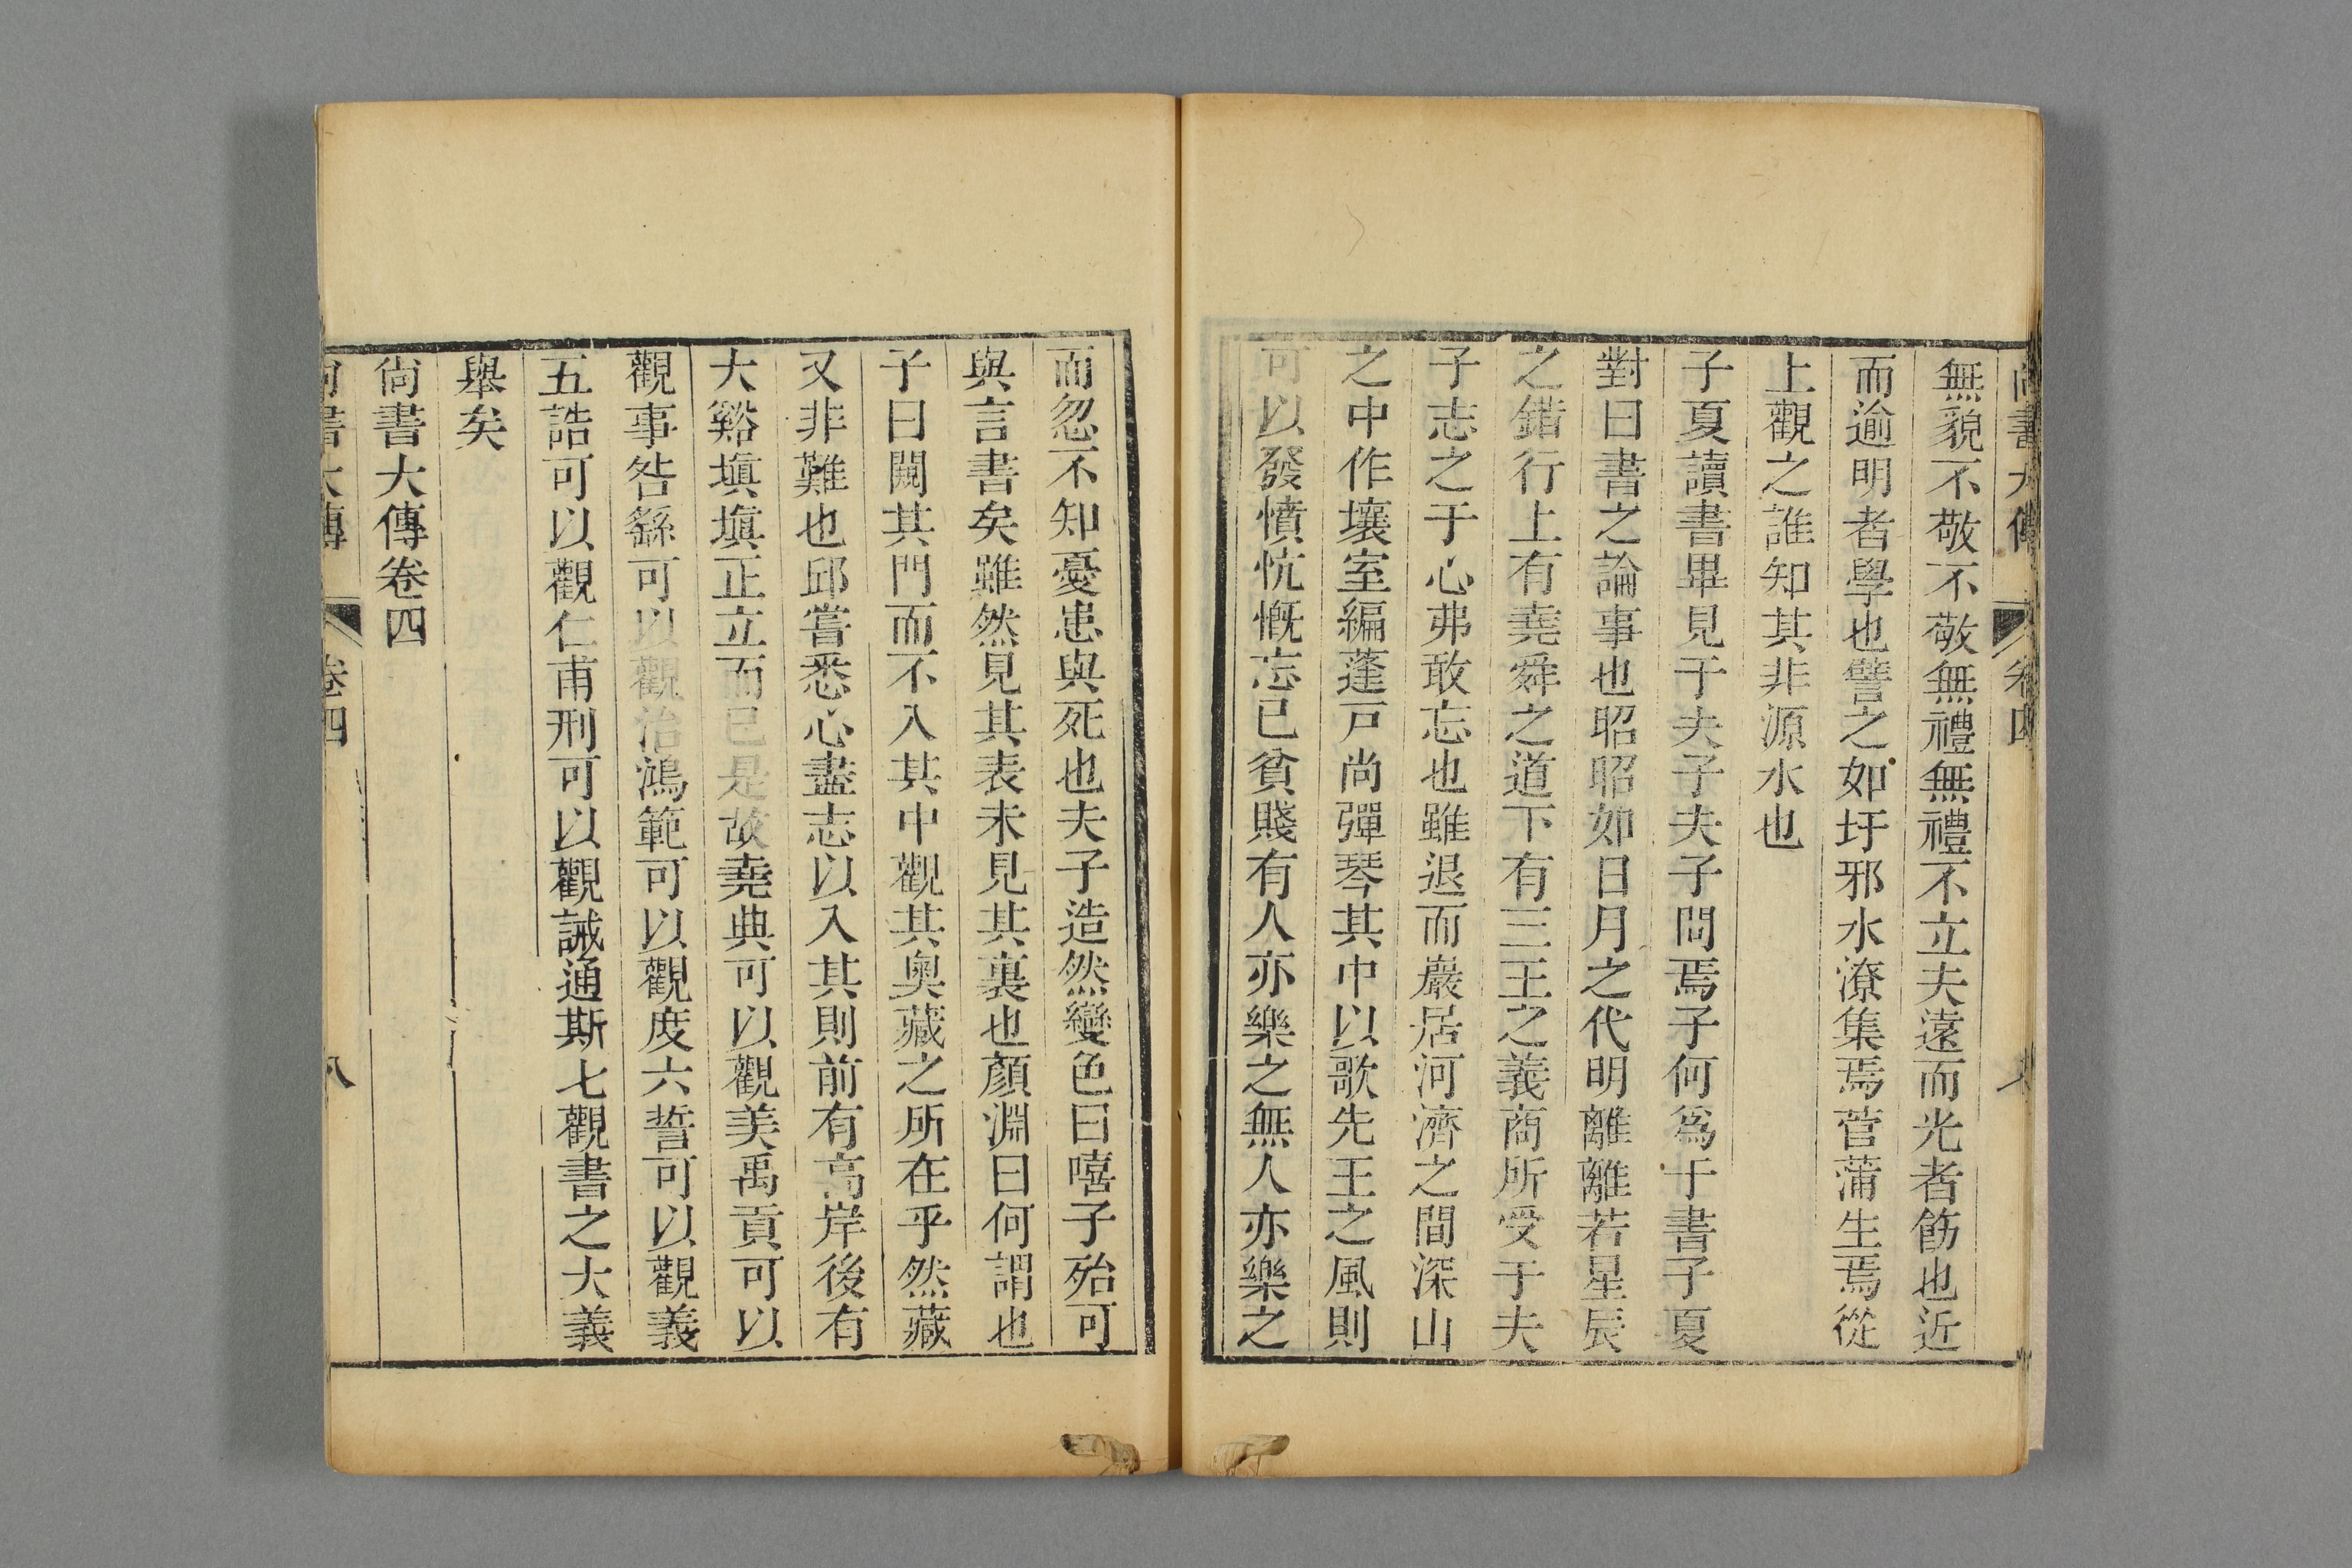 尚書大傳 卷四
無貌不敬不敬無禮無禮不立夫遠而光者飾也近
而逾明者學也譬之如圩邪水潦集焉菅蒲生焉從
上觀之誰知其非源水也
子夏讀書畢見于夫子夫子問焉子何爲于書子夏
對曰書之論事也昭昭如日月之代明離離若星辰
之錯行上有堯舜之道下有三王之義商所受于夫
子志之于心弗敢忘也雖退而巖居河濟之間深山
之中作壤室編蓬戸尚彈琴其中以歌先王之風則
可以發憤忼慨忘已貧賤有人亦樂之無人亦樂之
而忽不知憂患與死也夫子造然變色曰嘻子殆可
與言書矣雖然見其表未見其裏也顏淵曰何謂也
子曰闚其門而不入其中觀其奥藏之所在乎然藏
又非難也邱嘗悉心盡志以入其則前有高岸後有
大谿塡塡正立而已是故堯典可以觀美禹貢可以
觀事咎繇可以觀治鴻範可以觀度六誓可以觀義
五誥可以觀仁甫刑可以觀誡通斯七觀書之大義
舉矣
尚書大傳卷四
尚書大傳 卷四 八